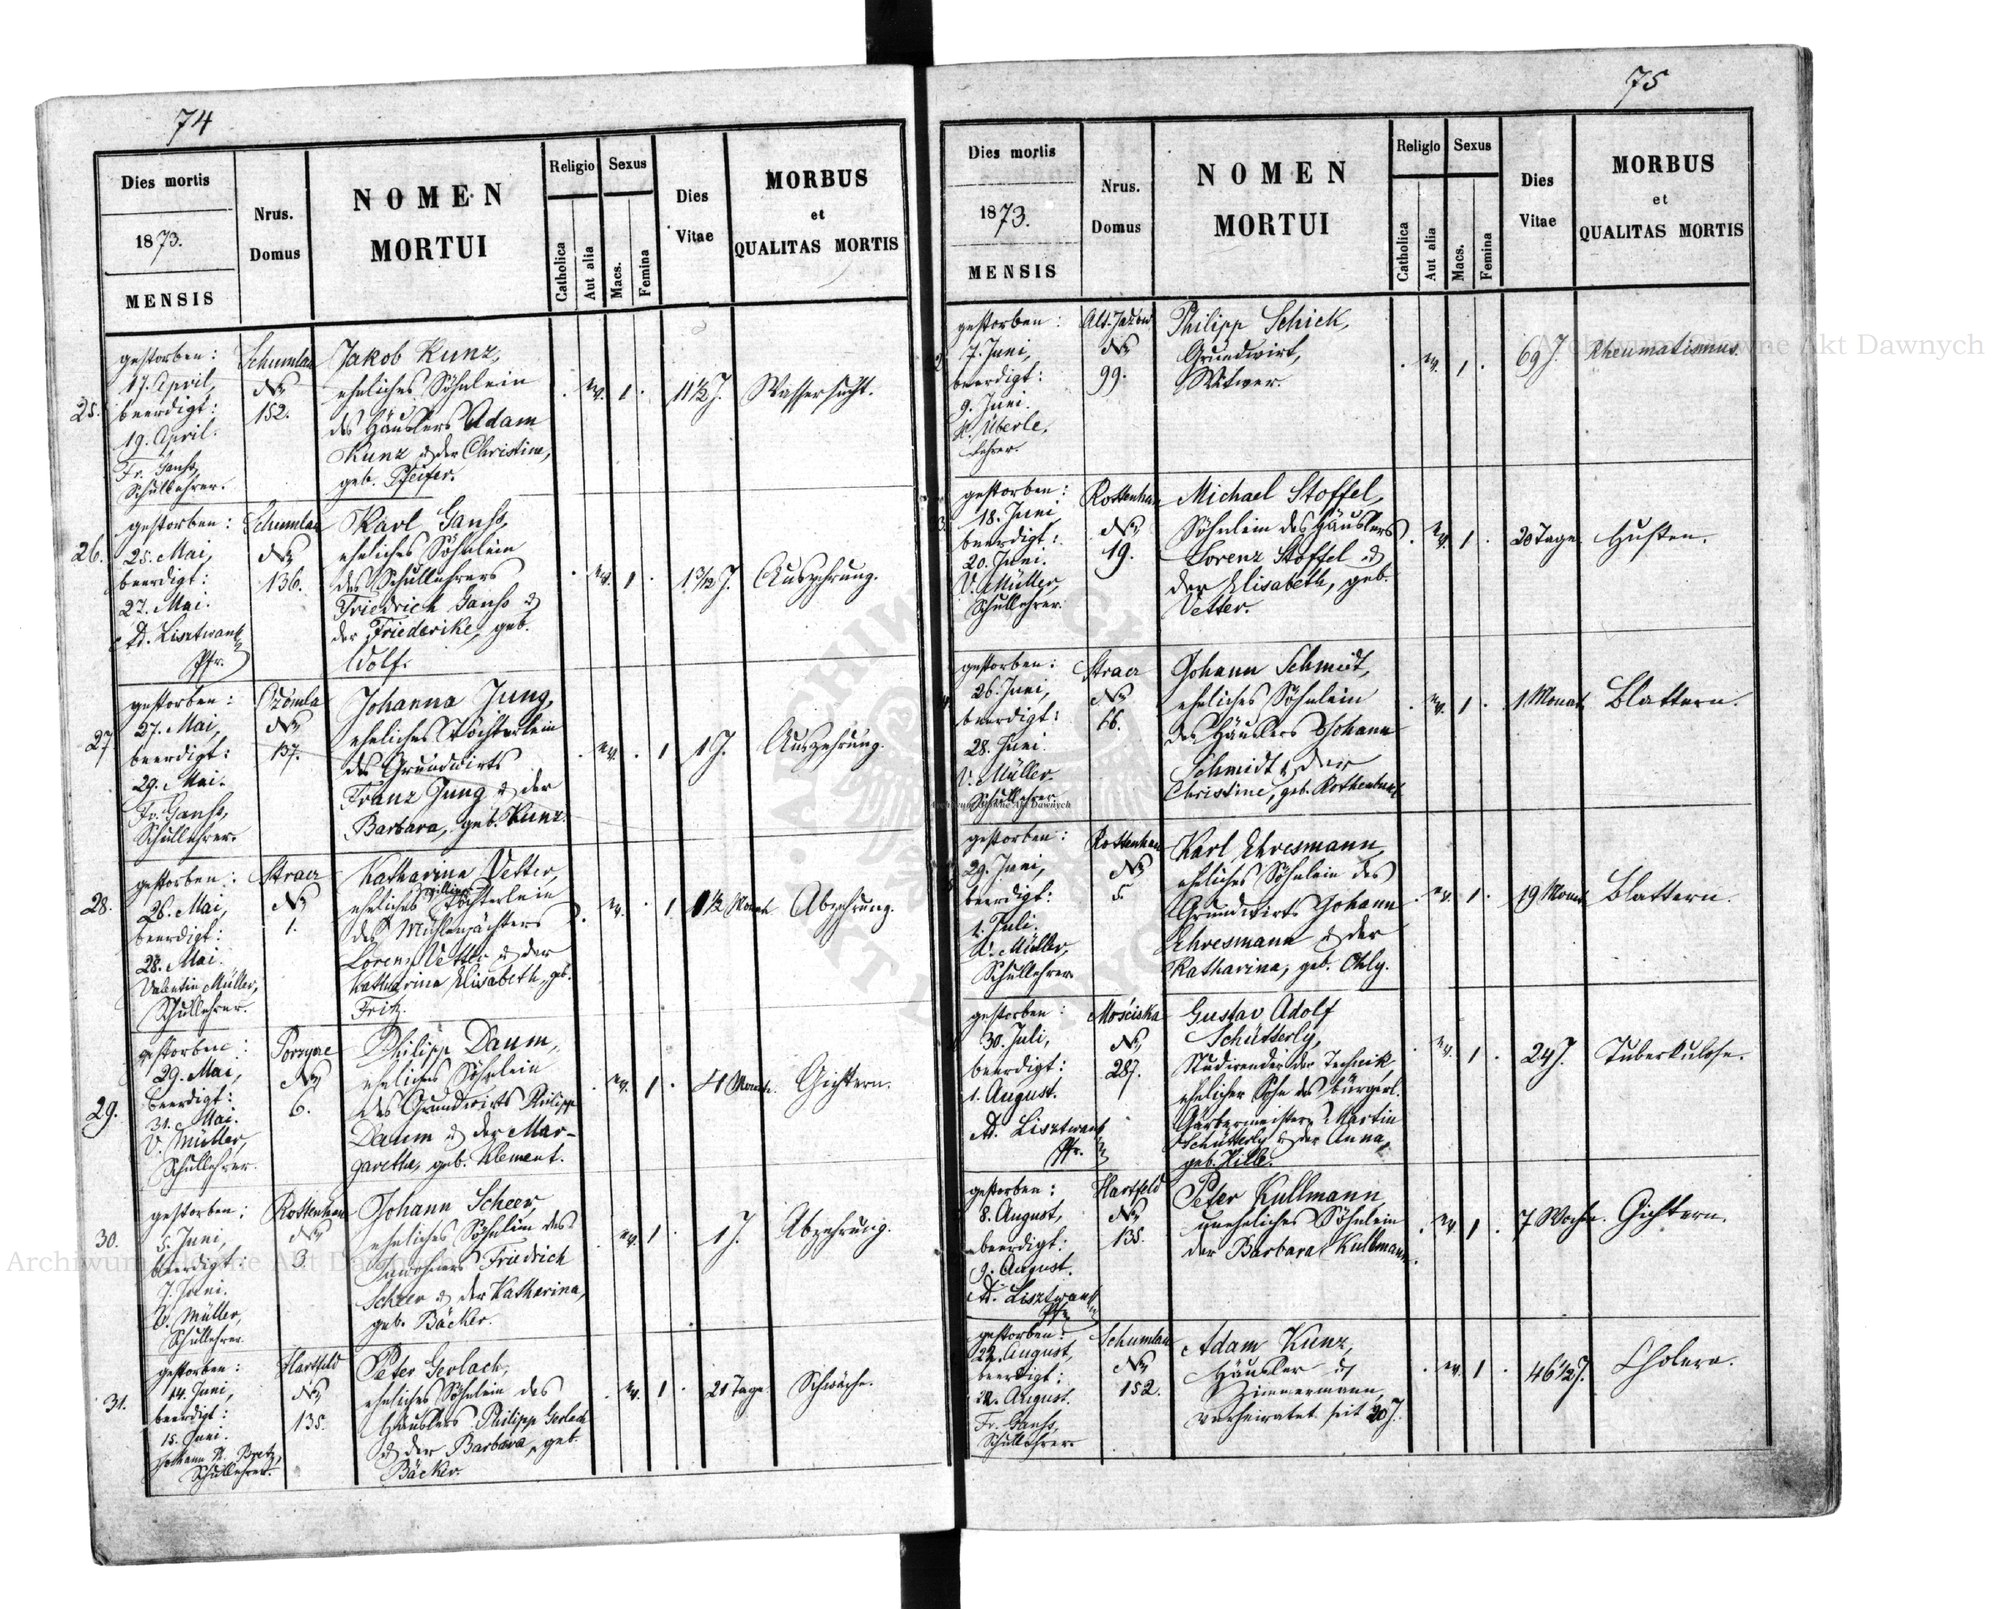 74
Dies mortis
1873.
MENSIS
Nrus.
Domus
NOMEN
MORTUI
Religio
Catholica
Aut alia
Sexus
Macs.
Femina
Dies
Vitae
MORBUS
et
QUALITAS MORTIS
25.
gestorben:
17. April,
beerdigt:
19. April.
Fr. Ganß,
Schullehrer.
Schumlau
No
152.
Jakob Kunz,
eheliches Söhnlein
des Häuslers Adam
Kunz & der Christina,
geb. Pfeifer.
ev.
1
11 1/2 J.
Wassersucht.
26.
gestorben:
25. Mai,
beerdigt:
27. Mai.
Ad. Lisztwan
Pfr.
Schumlau
No
136.
Karl Ganß,
eheliches Söhnlein
des Schullehrers
Friedrich Ganß &
der Friederike, geb.
Wolf.
ev.
1
Auszehrung.
27
gestorben:
27. Mai,
beerdigt:
29. Mai.
Fr. Ganß,
Schullehrer.
Czomla
No
137.
Johanna Jung,
eheliches Töchterlein
des Grundwirts
Franz Jung & der
Barbara, geb. Kunz.
ev.
1
1 J.
Auszehrung.
28.
gestorben:
26. Mai,
beerdigt:
28. Mai.
Valentin Müller,
Schullehrer.
Stracz
No
1.
Katharina Vetter,
eheliches Zwillings Töchterlein
des Mühlenpächters
Lorenz Vetter & der
Katharina Elisabeth, geb.
Fritz.
ev.
1
1 1/2 Monat
Abzehrung.
29.
gestorben:
29. Mai,
beerdigt:
31. Mai.
V. Müller,
Schullehrer.
No
6.
Philipp Daum,
eheliches Söhnlein
des Grundwirts Philipp
Daum & der Mar-
garetha, geb. Klement.
ev.
1
4 Monate.
Gichtern.
30.
gestorben:
5. Juni,
beerdigt:
7. Juni.
V. Müller,
Schullehrer.
Rottenhan
No
3.
Johann Scheer,
eheliches Söhnlein des
Inwohners Friedrich
Scheer & der Katharina,
geb. Bäcker.
ev.
1
1 J.
Abzehrung.
31.
gestorben:
14. Juni,
beerdigt:
15. Juni.
Johann A. Bretz,
Schullehrer.
Hartfeld
No
135.
Peter Gerlach,
eheliches Söhnlein des
Häuslers Philipp Gerlach
& der Barbara, geb.
Bäcker.
ev.
1
21 Tage.
Schwäche.
75
Dies mortis
1873.
MENSIS
Nrus.
Domus
NOMEN
MORTUI
Religio
Catholica
Aut alia
Sexus
Macs.
Femina
Dies
Vitae
MORBUS
et
QUALITAS MORTIS
gestorben:
7. Juni,
beerdigt:
9. Juni.
Überle,
Lehrer.
Alt-Jazow
No
99.
Philipp Schick,
Grundwirt,
Witwer.
ev.
1
69 J.
Rheumatismus.
gestorben:
18. Juni
beerdigt:
20. Juni.
V. Müller,
Schullehrer.
Rottenhan
No
19.
Michael Stoffel,
Söhnlein des Häuslers
Lorenz Stoffel &
der Elisabeth, geb.
Vetter.
ev.
1
20 Tage.
Husten.
gestorben:
26. Juni,
beerdigt:
28. Juni.
V. Müller.
Schullehrer
Stracz
No
16.
Johann Schmidt,
eheliches Söhnlein
des Häuslers Johann
Schmidt & der
Christine, geb.
ev.
1
1 Monat
Blattern.
gestorben:
29. Juni,
beerdigt:
1. Juli.
V. Müller,
Schullehrer
Rottenhan
No
5.
Karl Ehresmann,
eheliches Söhnlein des
Grundwirts Johann
Ehresmann & der
Katharina, geb. Ohly.
ev.
1
19 Monat
Blattern.
gestorben:
30. Juli,
beerdigt:
1. August.
Ad. Lisztwan
Pfr.
Mościska
No
287.
Gustav Adolf
Schütterly,
Studirender der Technik,
ehelicher Sohn des bürgerl.
Gärbermeisters Martin
Schütterly & der Anna,
geb. Hill.
ev.
1
24 J.
Tuberkulose.
gestorben:
8. August,
beerdigt:
9. August.
Ad. Lisztwan
Pfr.
Hartfeld
No
135.
Peter Kullmann
uneheliches Söhnlein
der Barbara Kullmann.
ev.
1
7 Wochen.
Gichtern.
gestorben:
22. August,
beerdigt:
August.
Fr. Ganß,
Schullehrer
Schumlau
No
152.
Adam Kunz,
Häusler &
Zimmermann,
verheiratet seit 20 J.
ev.
1
46 1/2 J.
Cholera.
Archiwum Główne Akt Dawnych
Archiwum Główne Akt Dawnych
Archiwum Główne Akt Dawnych